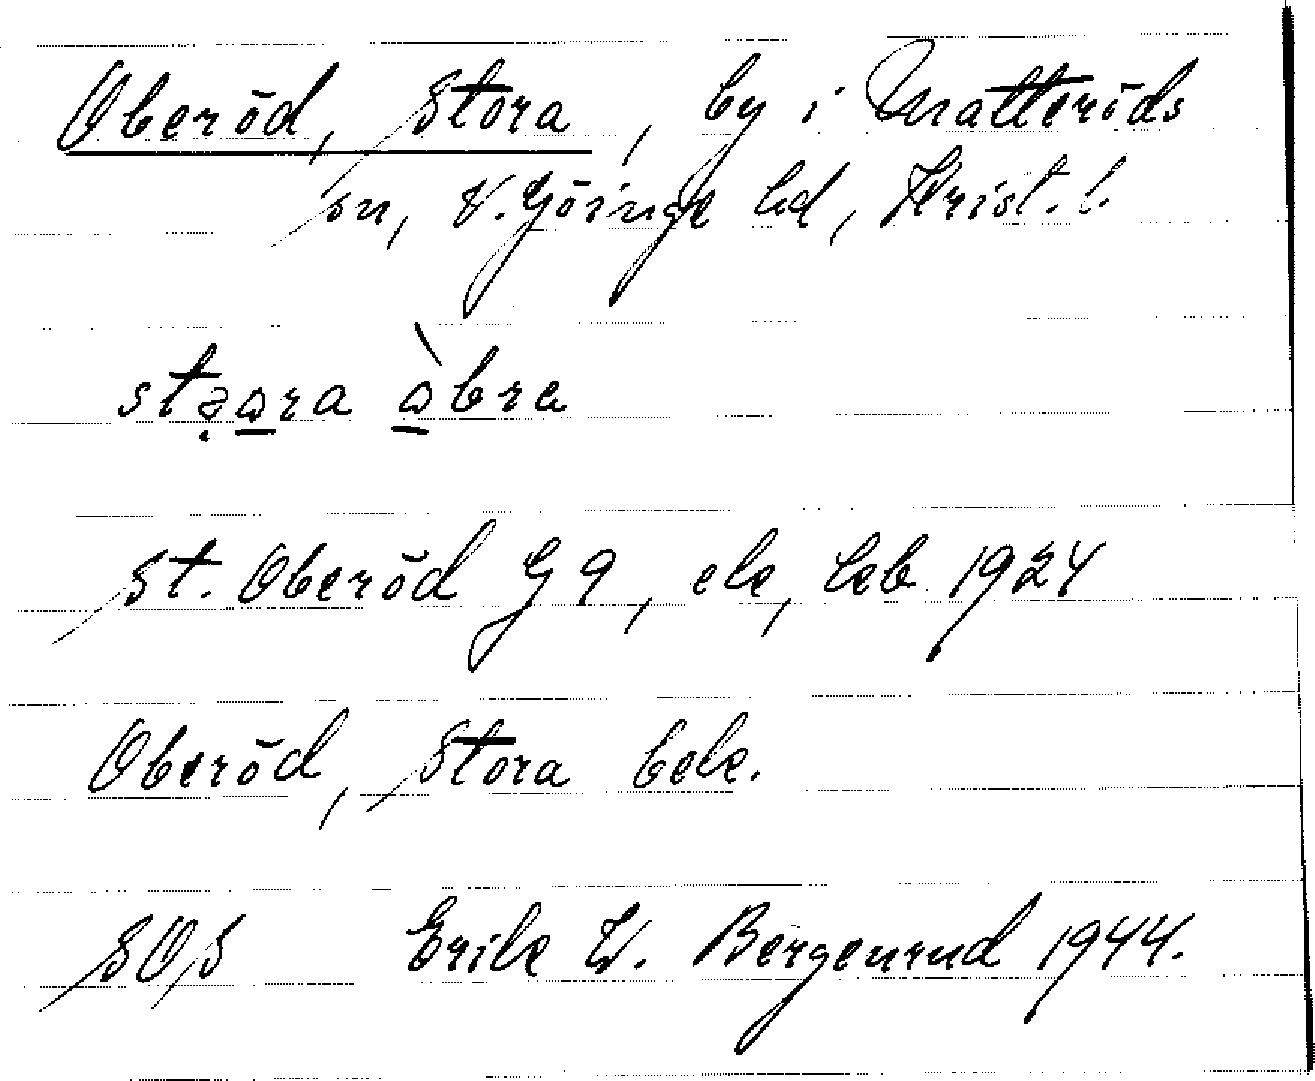 Oberöd, Stora, by i Matteröds
sn, V. Göinge hd, Krist. l.
stəora òbra
St. Oberöd G 9, ek, kb 1924
Oberöd, Stora bek.
SOS Erik W. Bergenrud 1944.